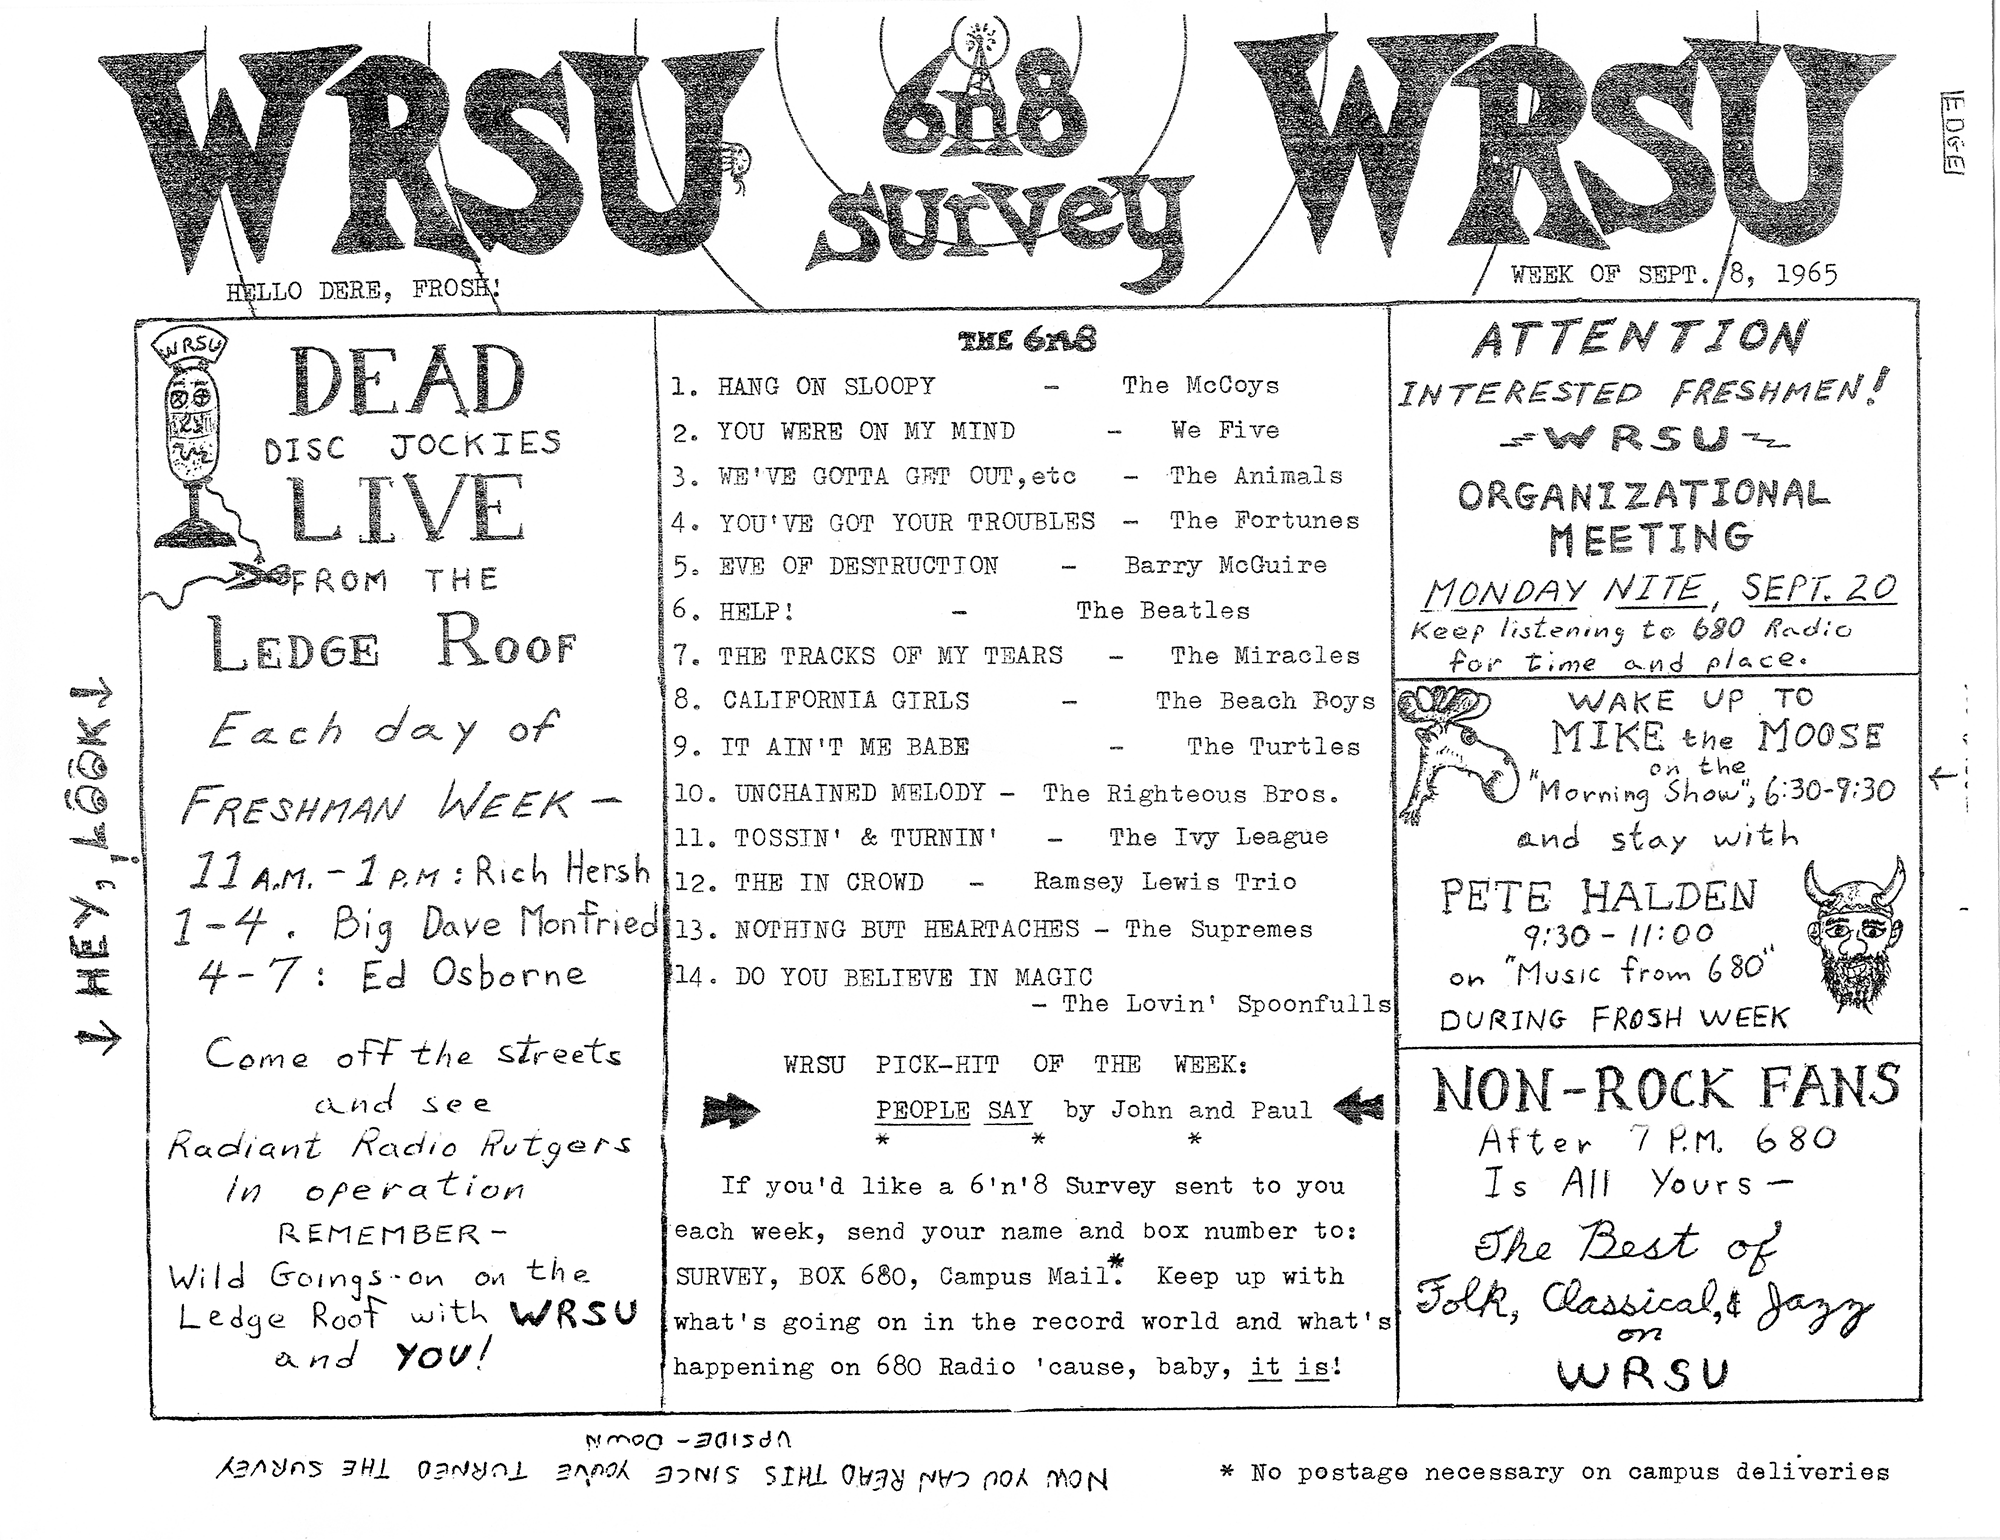 WRSU 6n8 WRSU
survey
HELLO DERE, FROSH!
WEEK OF SEPT. 8, 1965
EDGE
WRSU
DEAD
DISC JOCKIES
LIVE
FROM THE
LEDGE ROOF
Each day of
FRESHMAN WEEK —
11 A.M. - 1 P.M: Rich Hersh
1-4 . Big Dave Monfried
4-7 : Ed Osborne
Come off the streets
and see
Radiant Radio Rutgers
in operation
REMEMBER-
Wild Goings-on on the
Ledge Roof with WRSU
and YOU!
HEY, LOOK!
THE 6n8
1. HANG ON SLOOPY - The McCoys
2. YOU WERE ON MY MIND - We Five
3. WE'VE GOTTA GET OUT,etc - The Animals
4. YOU'VE GOT YOUR TROUBLES - The Fortunes
5. EVE OF DESTRUCTION - Barry McGuire
6. HELP! - The Beatles
7. THE TRACKS OF MY TEARS - The Miracles
8. CALIFORNIA GIRLS - The Beach Boys
9. IT AIN'T ME BABE - The Turtles
10. UNCHAINED MELODY - The Righteous Bros.
11. TOSSIN' & TURNIN' - The Ivy League
12. THE IN CROWD - Ramsey Lewis Trio
13. NOTHING BUT HEARTACHES - The Supremes
14. DO YOU BELIEVE IN MAGIC
- The Lovin' Spoonfulls
WRSU PICK-HIT OF THE WEEK:
PEOPLE SAY by John and Paul
* * *
If you'd like a 6'n'8 Survey sent to you
each week, send your name and box number to:
SURVEY, BOX 680, Campus Mail.* Keep up with
what's going on in the record world and what's
happening on 680 Radio 'cause, baby, it is!
ATTENTION
INTERESTED FRESHMEN!
WRSU
ORGANIZATIONAL
MEETING
MONDAY NITE, SEPT. 20
Keep listening to 680 Radio
for time and place.
WAKE UP TO
MIKE the MOOSE
on the
"Morning Show", 6:30-9:30
and stay with
PETE HALDEN
9:30 - 11:00
on "Music from 680"
DURING FROSH WEEK
NON-ROCK FANS
After 7 P.M. 680
Is All Yours —
The Best of
Folk, Classical, & Jazz
on
WRSU
NOW YOU CAN READ THIS SINCE YOU'VE TURNED THE SURVEY
UPSIDE-DOWN
* No postage necessary on campus deliveries